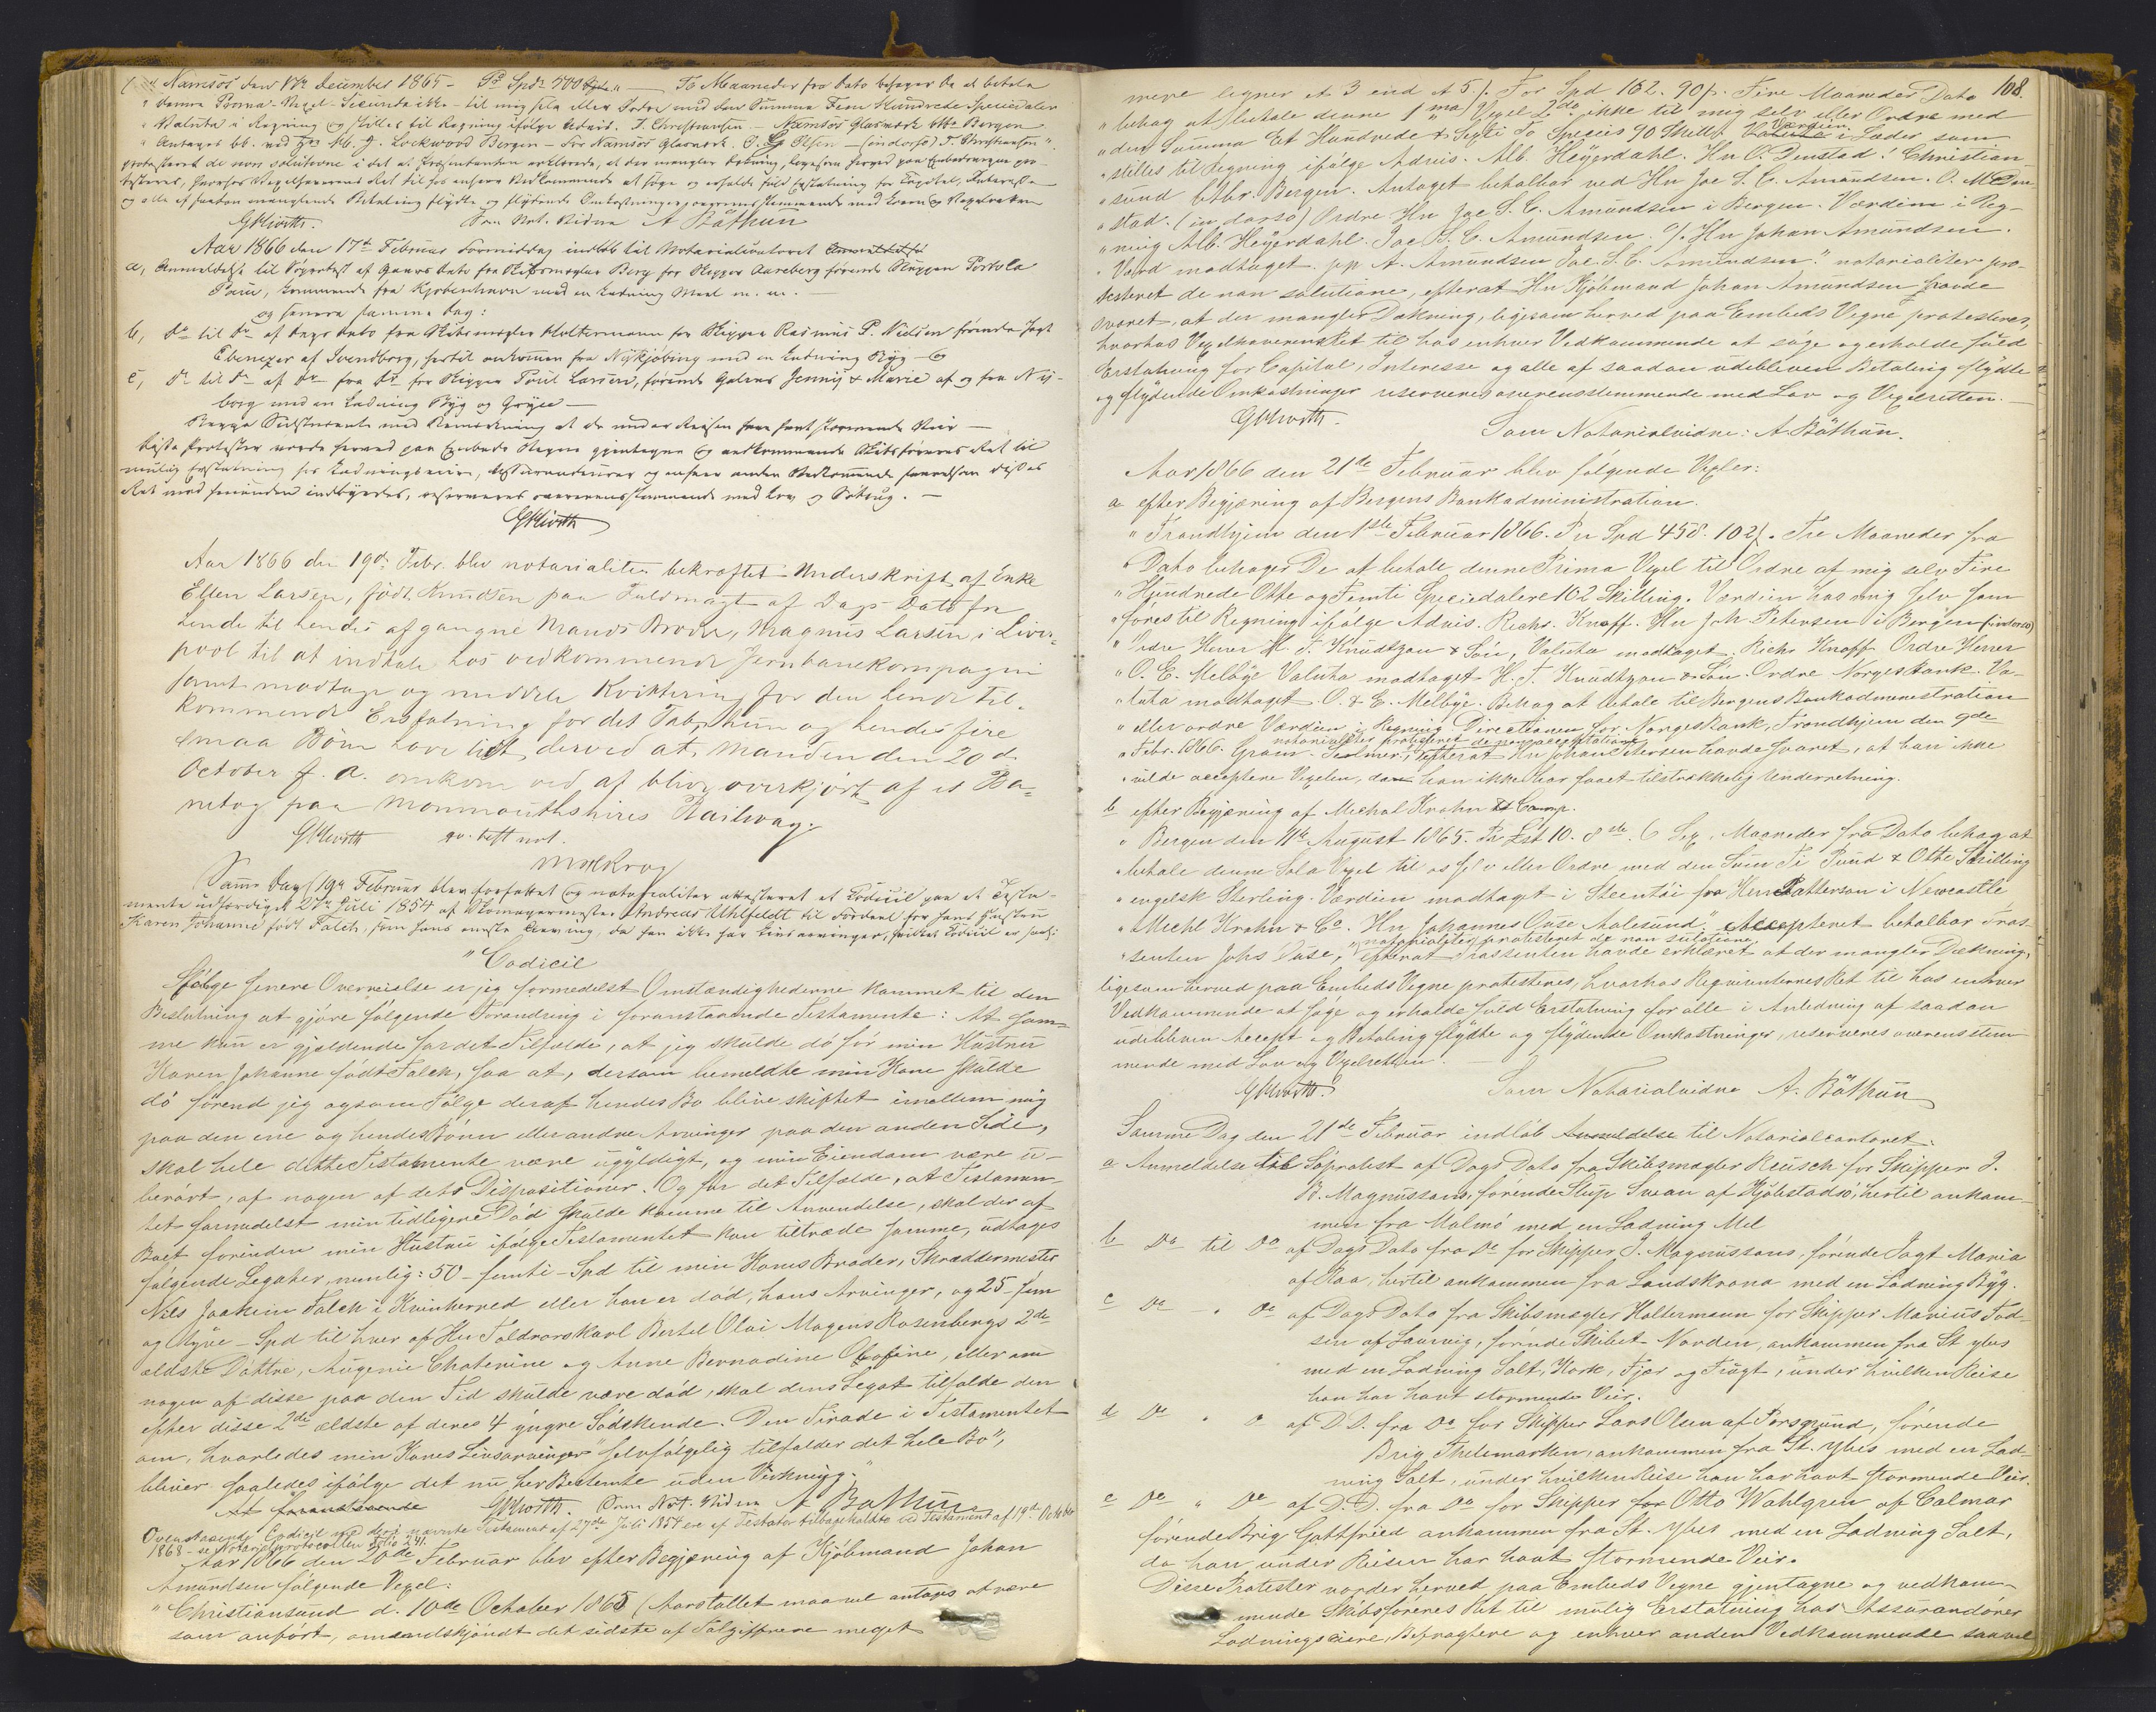 " Namsos den 17de December 1865 - Pr Spd 500 To Maaneder fra Dato behager De at betale
" denne Prima-Vexel-Secunda ikke - til mig selv eller Ordre med den Summa Fem Hundrede Speciedaler
" Valuta i Regning og stilles til Regning ifølge Advis. T. Christiansen - Namsos Glasværk Bergen
" Antages bb. Lockwood Bergen - for Namsos Glasværk. O. Olsen - (in dorso) T. Christiansen".
protesteret de non solutione i det at Præsentanten erklærede, at der mangler Dækning, ligesom herved paa Embedsvegne pro-
testeres, hvorhos Vexelhaverens Ret til hos enhver Vedkommende at søge og erholde fuld Erstatning for Capital, Interesse
og alle af saadan manglende Betaling flydte og flydende Omkostninger, overensstemmende med Loven og Vexelretten
Som Not. Vidne A Bøthun
Aar 1866 den 17de Februar Formiddag indløb til Notarialcontoret
a, Anmeldelse til Søprotest af Gaars Dato fra Skibsmægler Berg for Skipper Aareberg førende Skuppen Portola
kommende fra Kjøbenhavn med en Ladning Meel m. m.
og senere samme Dag:
b, Do til Do af Dags Dato fra Skibsmægler Holtermann for Skipper Rasmus P. Nielsen førende Jagt
Ebenezer af Svendborg, hertil ankommen fra Nykjøbing med en Ladning Byg - og
c, Do til Do af Do fra Do for Skipper Poul Larsen, førende Galeas Jenny & Marie af og fra Ny-
borg med en Ladning Byg og Gryn -
Begge Sidstnævnte med Bemærkning at de under Reisen have havt stormende Veir -
Disse Protester vorde herved paa Embeds Vegne gjentagne og vedkommende Skibsføreres Ret til
mulig Erstatning hos Ladningseiere, Assurandeurer og enhver anden Vedkommende saavelsom disses
Ret mod hinanden indbyrdes, reserveres overensstemmende med Lov og Søbrug. -
Aar 1866 den 19de Febr. blev notarialiter bekræftet Underskrift af Enke
Ellen Larsen, født Knudsen paa Fuldmagt af Dags Dato fra
hende til hendes afgangne Mands Broder, Magnus Larsen i Liver-
pool til at indtale hos vedkommende Jernbanekompagni
samt modtage og meddele Kvittering for den hende til-
kommende Erstatning for det Tab, hun og hendes fire
smaa Børn have lidt derved at Manden den 20de
October f. A. omkom ved at blive overkjørt af et Ba-
netog paa Monmouthshires Railway.
qv. test not.
Samme Dag (19de Februar) blev forfattet og notarialiter attesteret et Codicil paa et Testa-
mente udfærdiget 27de Juli 1854 af Skomagermester Andreas Uhlfeldt til Fordeel for hans Hustru
Karen Johanne født Falch, som hans eneste Arving, da han ikke har Livsarvinger, hvilket Codicil er saal:
"Codicil
Ifølge senere Overveielse er jeg formedelst Omstændighederne kommet til den
Beslutning at gjøre følgende Forandring i foranstaaende Testamente: At sam-
me kun er gjældende for det Tilfælde, at jeg skulde dø før min Hustru
Karen Johanne født Falch, saa at, dersom bemeldte min Kone skulde
dø førend jeg og som Følge deraf hendes Bo blive skiftet imellem mig
paa den ene og hendes Børn eller andre Arvinger paa den anden Side,
skal hele dette Testamente være ugyldigt, og min Eiendom være u-
berørt, af nogen af dets Dispositioner. Og for det Tilfælde, at Testamen-
tet formedelst min tidligere Død skulde komme til Anvendelse, skal der af
Boet forinden min Hustru ifølge Testamentet kan tiltræde samme, udtages
følgende Legater, nemlig: 50 - femti - Spd til min Kones Broder, Skræddermester
Nils Joachim Falch i Kvinherred eller han er død, hans Arvinger, og 25 - fem
og tyve - Spd til hver af Hr Toldroerskarl Bertel Olai Mogens Rosenbergs 2de
ældste Døttre, Augenie Chatrine og Anne Bernadine Olofine, eller om
nogen af disse paa den Tid skulde være død, skal dens Legat tilfalde den
efter disse 2de ældste af deres 4 yngre Sødskende. Den Tirade i Testamentet
om, hvorledes min Kones Livsarvinger "selvfølgelig tilfalder det hele Bo",
bliver saaledes ifølge det nu her Bestemte uden Virkning."
At foranstaaende Som Not. Vidne A Bøthun
Ovenstaaende Codicil med deri nævnte Testament af 27de Juli 1854 er af Testator tilbagekaldte ved Testament af 19de October
1868 - se Notarialprotocollen Folio 241.
Aar 1866 den 20de Februar blev efter Begjæring af Kjøbmand Johan
Amundsen følgende Vexel:
" Christiansund d. 10de October 1865 (Aarstallet maa vel antages at være
som anført, omendskjøndt det sidste af Talzifferne meget
108.
mere ligner et 3 end et 5.) For Spd 162. 90 s. Fire Maaneder Dato
" behag at betale denne 1ma Vexel 2da ikke til mig selv eller Ordre med
" den Summa Et Hundrede & Sexti To Species 90 Skill Værdien i Læder som
" stilles til Regning ifølge Advis. Alb. Heyerdahl. Hr O. Denstad! Christian
" sund btbr. Bergen. Antaget betalbar ved Hr Jac S. C. Amundsen. O. M Den
" stad. (in dorso) Ordre Hr Jac S. C. Amundsen i Bergen. Værdien i Reg-
" ning Alb. Heyerdahl. Jac S. C. Amundsen. Hr Johan Amundsen.
" Værd modtaget. pp A. Amundsen Jac. S. C. Amundsen." notarialiter pro-
testeret de non solutione, efterat Hr Kjøbmand Johan Amundsen havde
svaret, at der mangler Dækning, ligesom herved paa Embeds Vegne protesteres,
hvorhos Vexelhaverens Ret til hos enhver Vedkommende at søge og erholde fuld
Erstatning for Capital, Interesse og alle af saadan udebleven Betaling flydte
og flydende Omkostninger reserveres overensstemmende med Lov og Vexelretten.
Som Notarialvidne: A. Bøthun.
Aar 1866 den 21de Februar blev følgende Vexler:
a efter Begjæring af Bergens Bankadministration.
" Trondhjem den 1ste Februar 1866. Pr Spd 458. 102 s. Tre Maaneder fra
" Dato behager De at betale denne Prima Vexel til Ordre af mig selv Fire
" Hundrede Otte og Femti Speciedalere 102 Skilling. Værdien hos mig selv som
" føres til Regning ifølge Advis. Richs. Knoff. Hr Joh Petersen i Bergen (in dorso)
" Ordre Herrer H. T. Knudtzon & Søn, Valuta modtaget. Richs Knoff Ordre Herrer
" O. E. Melbye Valuta modtaget H. T. Knudtzon & Søn. Ordre Norges Bank. Va-
" luta modtaget O. & E. Melbye. Behag at betale til Bergens Bankadministration
" eller ordre Værdien i Regning Directionen for Norges Bank, Trondhjem den 9de
" Febr. 1866. notarialiter protesteret de non acceptatione, efterat Hr Johan Petersen havde svaret, at han ikke
" vilde acceptere Vexelen, da han ikke har faaet tilstrækkelig Underretning.
b efter Begjæring af Michal Krohn & Comp.
" Bergen den 11te August 1865. Pr £st 10. 8 sh. 6 Sex Maaneder fra Dato behag at
" betale denne Sola Vexel til os selv eller Ordre med den Sum Ti Pund & Otte Skilling
" engelsk Sterling. Værdien modtaget i Steentøi fra Herr Patterson i Newcastle
" Michl Krohn & Co. Hr Johannes Ouse Aalesund." Accepteret betalbar Tras
" senten Johs Ouse," notarialiter protesteret de non solutione, efterat Trassenten havde erklæret at der mangler Dækning,
ligesom herved paa Embeds Vegne protesteres, hvorhos Requirenternes Ret til hos enhver
Vedkommende at søge og erholde fuld Erstatning for alle i Anledning af saadan
udebleven Accept og Betaling flydte og flydende Omkostninger, reserveres overensstem
mende med Lov og Vexelretten.
Som Notarialvidne A. Bøthun
Samme Dag den 21de Februar indløb Anmeldelse til Notarialcontoret:
a Anmeldelse til Søprotest af Dags Dato fra Skibsmægler Reusch for Skipper J.
B. Magnussons, førende Slup Swan af Kjøbstadsø, hertil ankom-
men fra Malmø med en Ladning Mel
b Do til Do af Dags Dato fra Do for Skipper J. Magnussons, førende Jagt Maria
af Raa, hertil ankommen fra Landskrona med en Ladning Byg.
c Do - " Do af Dags Dato fra Skibsmægler Holtermann for Skipper Marius Tod-
sen af Laurvig, førende Skibet Norden, ankommen fra St ybes
med en Ladning Salt, Kork, Fjær og Frugt, under hvilken Reise
han har havt stormende Veir.
d Do " Do af D. D. fra Do for Skipper Lars Olsen af Porsgrund, førende
Brig Thelemarken, ankommen fra St. Ybes med en Lad-
ning Salt, under hvilken Reise han har havt stormende Veir.
e Do " Do af D. D. fra Do for Skipper for Otto Wahlgren af Calmar
førende Brig Gottfried ankommen fra St. Ybes med en Ladning Salt,
da han under Reisen har havt stormende Veir.
Disse Protester vorder herved paa Embeds Vegne gjentagne og vedkom-
mende Skibsføreres Ret til mulig Erstatning hos Assurandører
Ladningseiere, Befragtere og enhver anden Vedkommende saavel